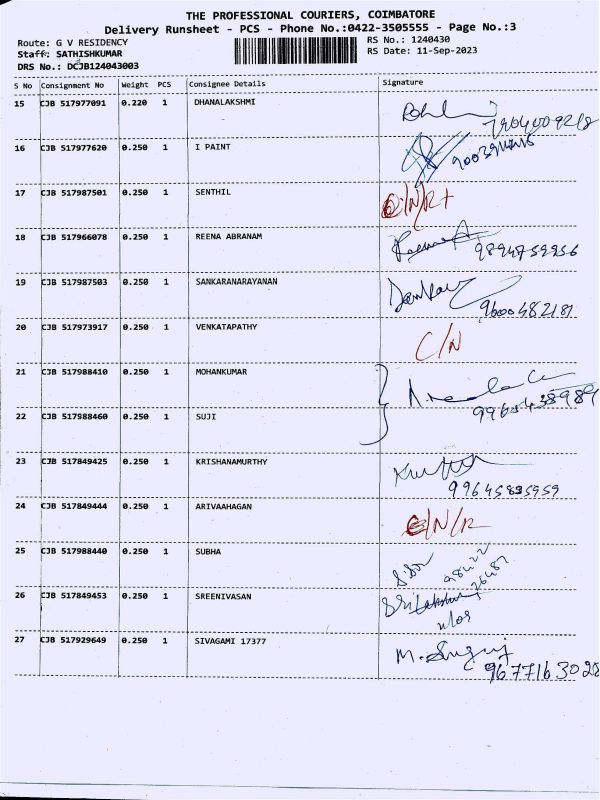 THE PROFESSIONAL COURIERS, COIMBATORE
Delivery Runsheet - PCS - Phone No.:0422-3505555 - Page No.:3
Route: G V RESIDENCY RS No.: 1240430
Staff: SATHISHKUMAR RS Date: 11-Sep-2023
DRS No.: DCJB124043003
S No Consignment No Weight PCS Consignee Details Signature
15 CJB 517977091 0.220 1 DHANALAKSHMI
16 CJB 517977620 0.250 1 I PAINT
17 CJB 517987501 0.250 1 SENTHIL
18 CJB 517966078 0.250 1 REENA ABRANAM
19 CJB 517987503 0.250 1 SANKARANARAYANAN
9600482181
20 CJB 517973917 0.250 1 VENKATAPATHY C/N
21 CJB 517988410 0.250 1 MOHANKUMAR
22 CJB 517988460 0.250 1 SUJI
23 CJB 517849425 0.250 1 KRISHANAMURTHY
99645835959
24 CJB 517849444 0.250 1 ARIVAAHAGAN C/N/R
25 CJB 517988440 0.250 1 SUBHA
26 CJB 517849453 0.250 1 SREENIVASAN
27 CJB 517929649 0.250 1 SIVAGAMI 17377
9677163028